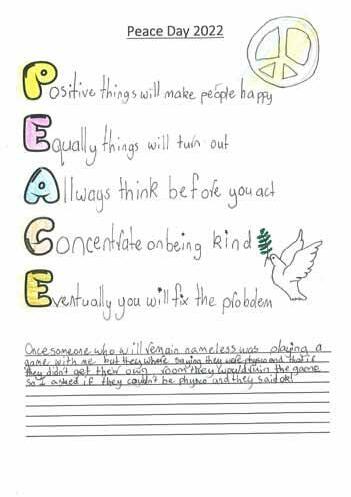 Peace Day 2022
Positive things will make people happy
Equally things will turn out
Allways think before you act
Concentrate on being kind
Eventually you will fix the probdem
Once someone who will remain nameless was playing a
game with me but they where saying they were physco and that if
they didn't get their own room they would ruin the game
so I asked if they couldn't be physco and they said ok!